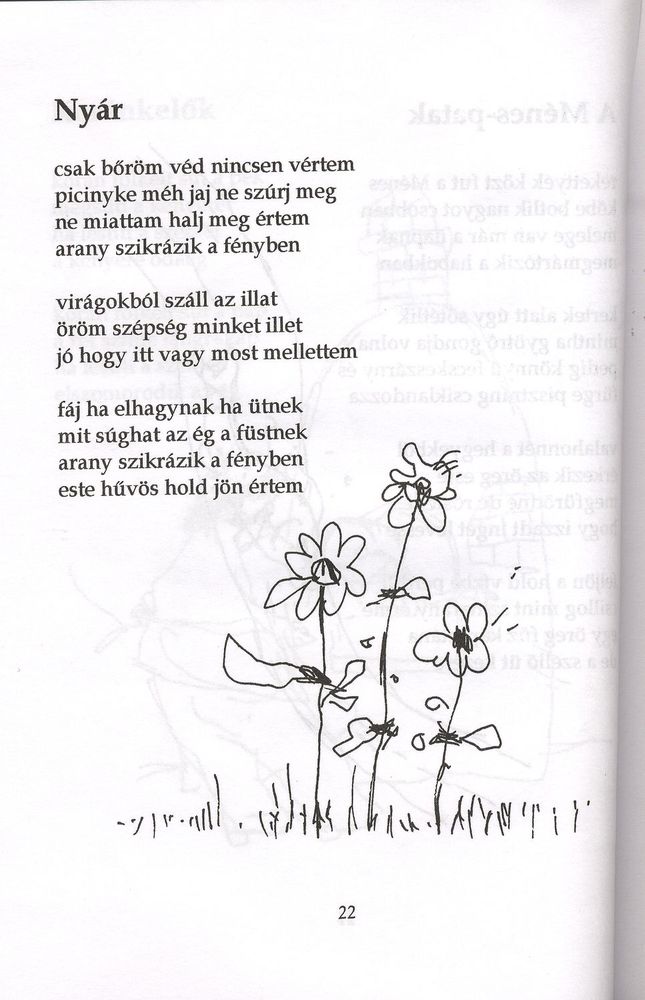 Nyár
csak bőröm véd nincsen vértem
picinyke méh jaj ne szúrj meg
ne miattam halj meg értem
arany szikrázik a fényben
virágokból száll az illat
öröm szépség minket illet
jó hogy itt vagy most mellettem
fáj ha elhagynak ha ütnek
mit súghat az ég a füstnek
arany szikrázik a fényben
este hűvös hold jön értem
22